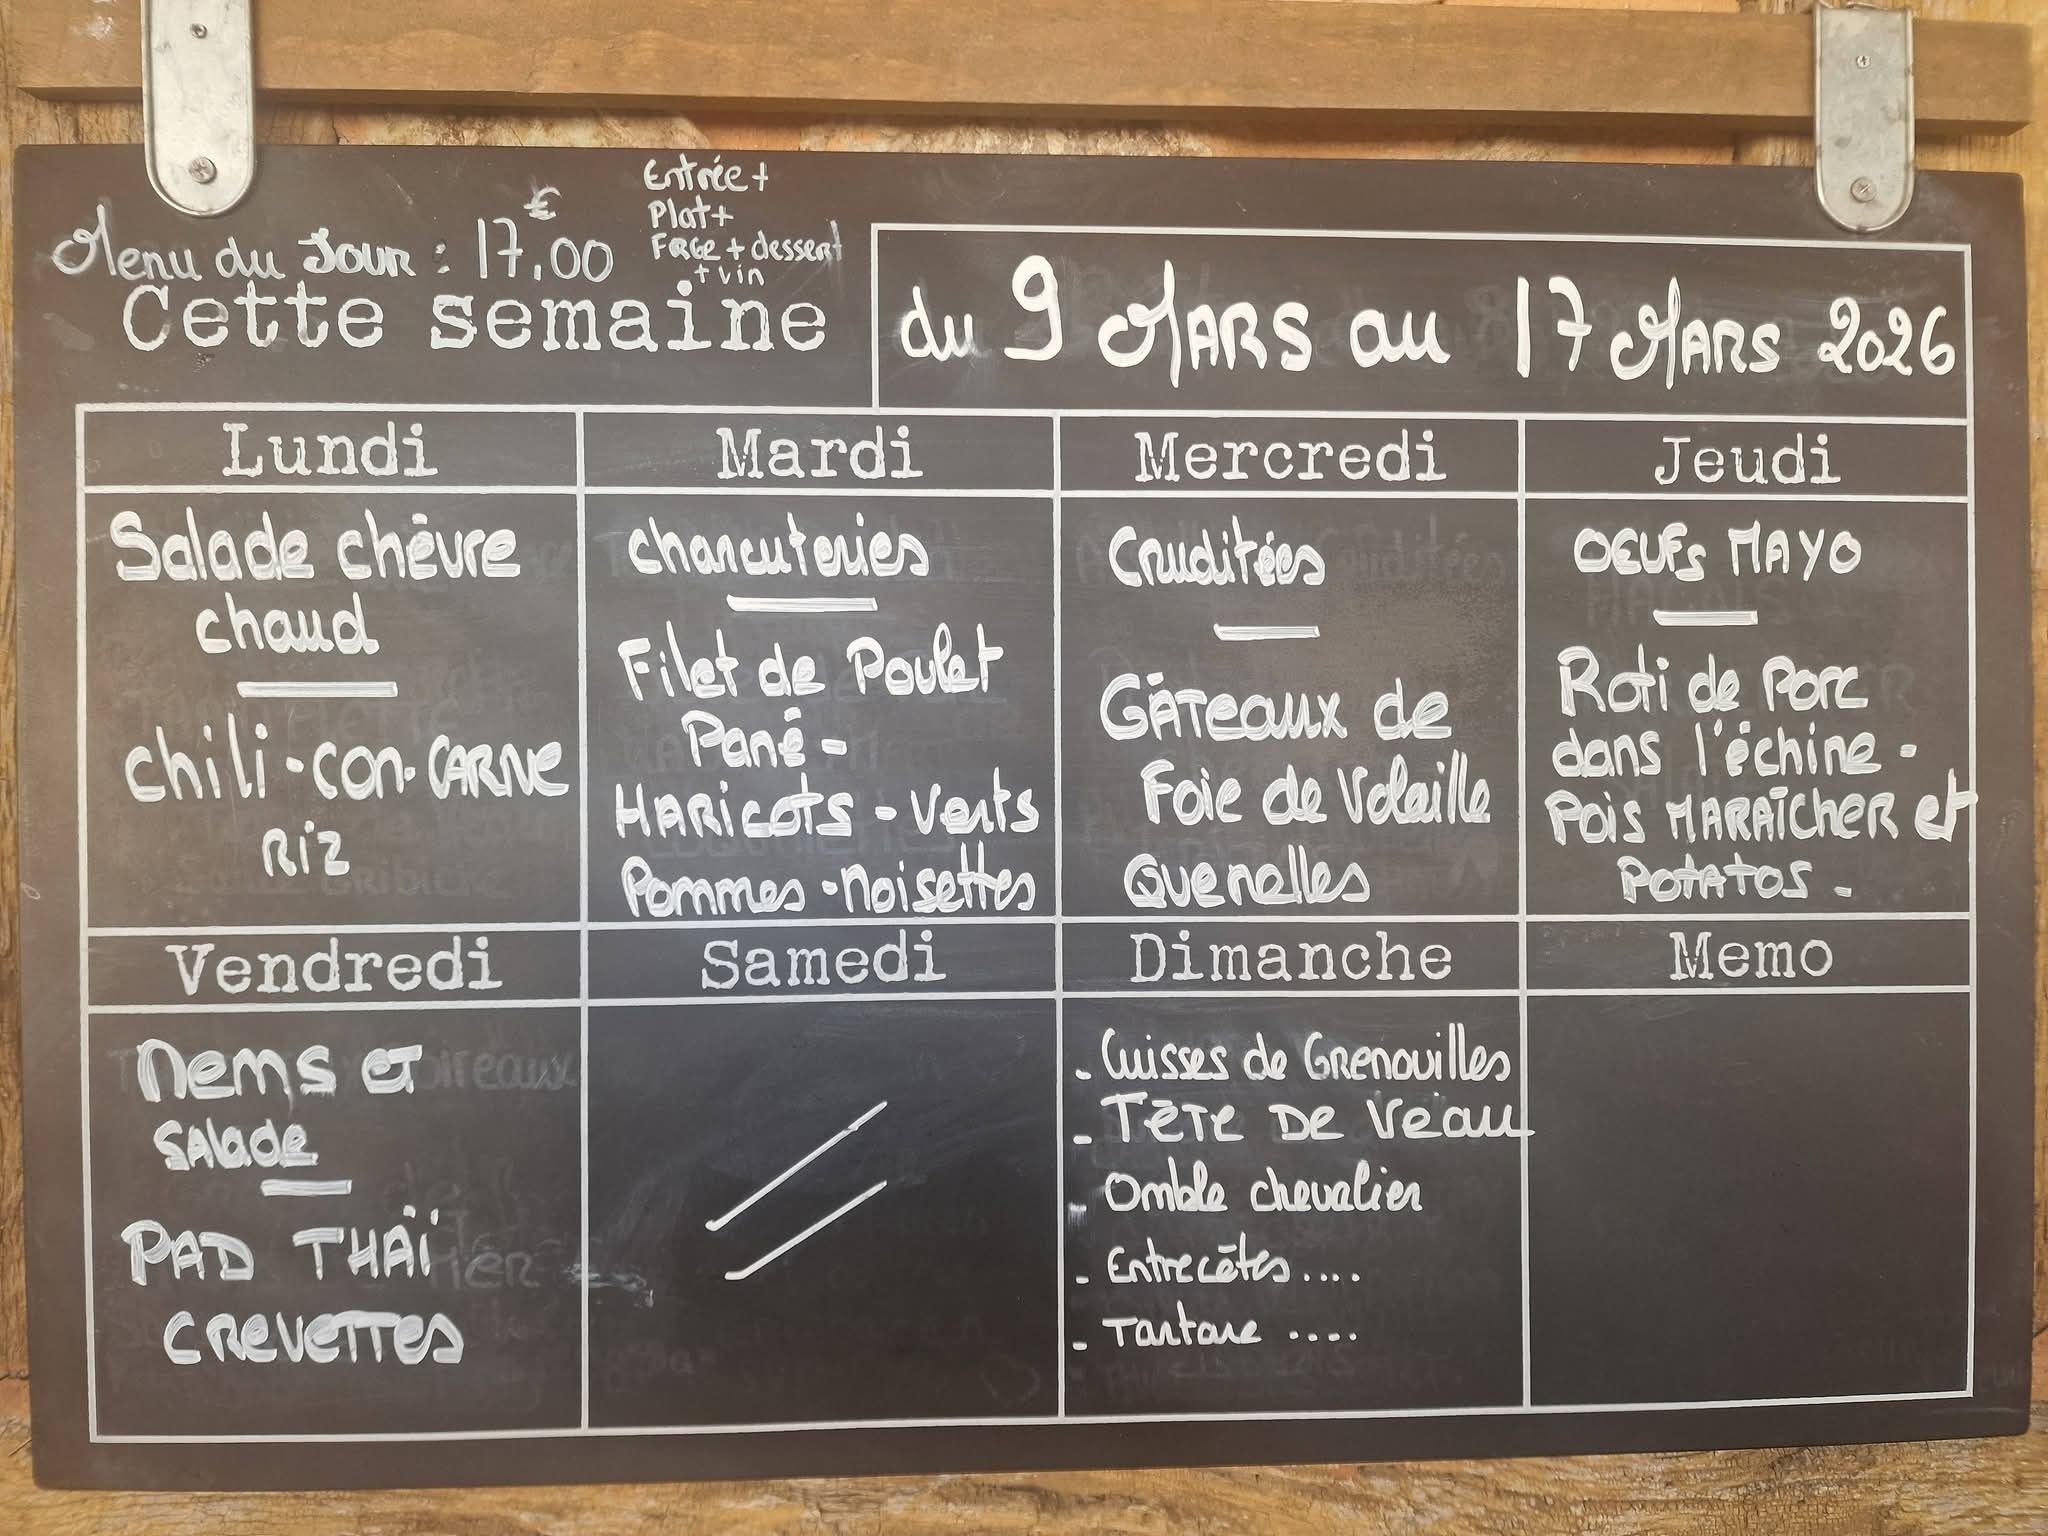 Menu du Jour : 17,00 €
Entrée +
Plat +
Frge + dessert
+ vin
Cette semaine
du 9 Mars au 17 Mars 2026
Lundi
Salade chèvre
chaud
Chili-con-CARNE
Riz
Mardi
Charcuteries
Filet de Poulet
Pané -
HARicots - Verts
Pommes - Noisettes
Mercredi
Cruditées
GÂTeaux de
Foie de Volaille
Quenelles
Jeudi
OEUFs MAYO
Roti de Porc
dans l'échine -
Pois MARAÎCHER et
POTATOS -
Vendredi
Nems et
SAlade
PAD THAÏ
CREVETTES
Samedi
Dimanche
- Cuisses de Grenouilles
- TÊTE DE Veau
- Omble chevalier
- Entrecôtes ....
- Tartare ....
Memo